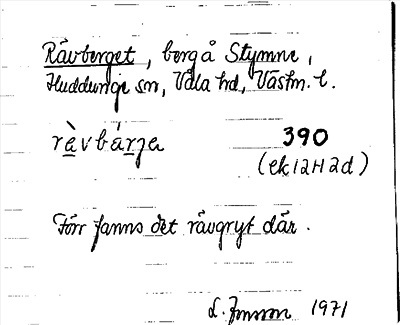 Rävberget, berg å Stymne,
Huddunge sn, Våla hd, Västm. l.
ràvbárja 390
(ek 12H2d)
Förr fanns det rävgryt där.
L. Jonsson 1971